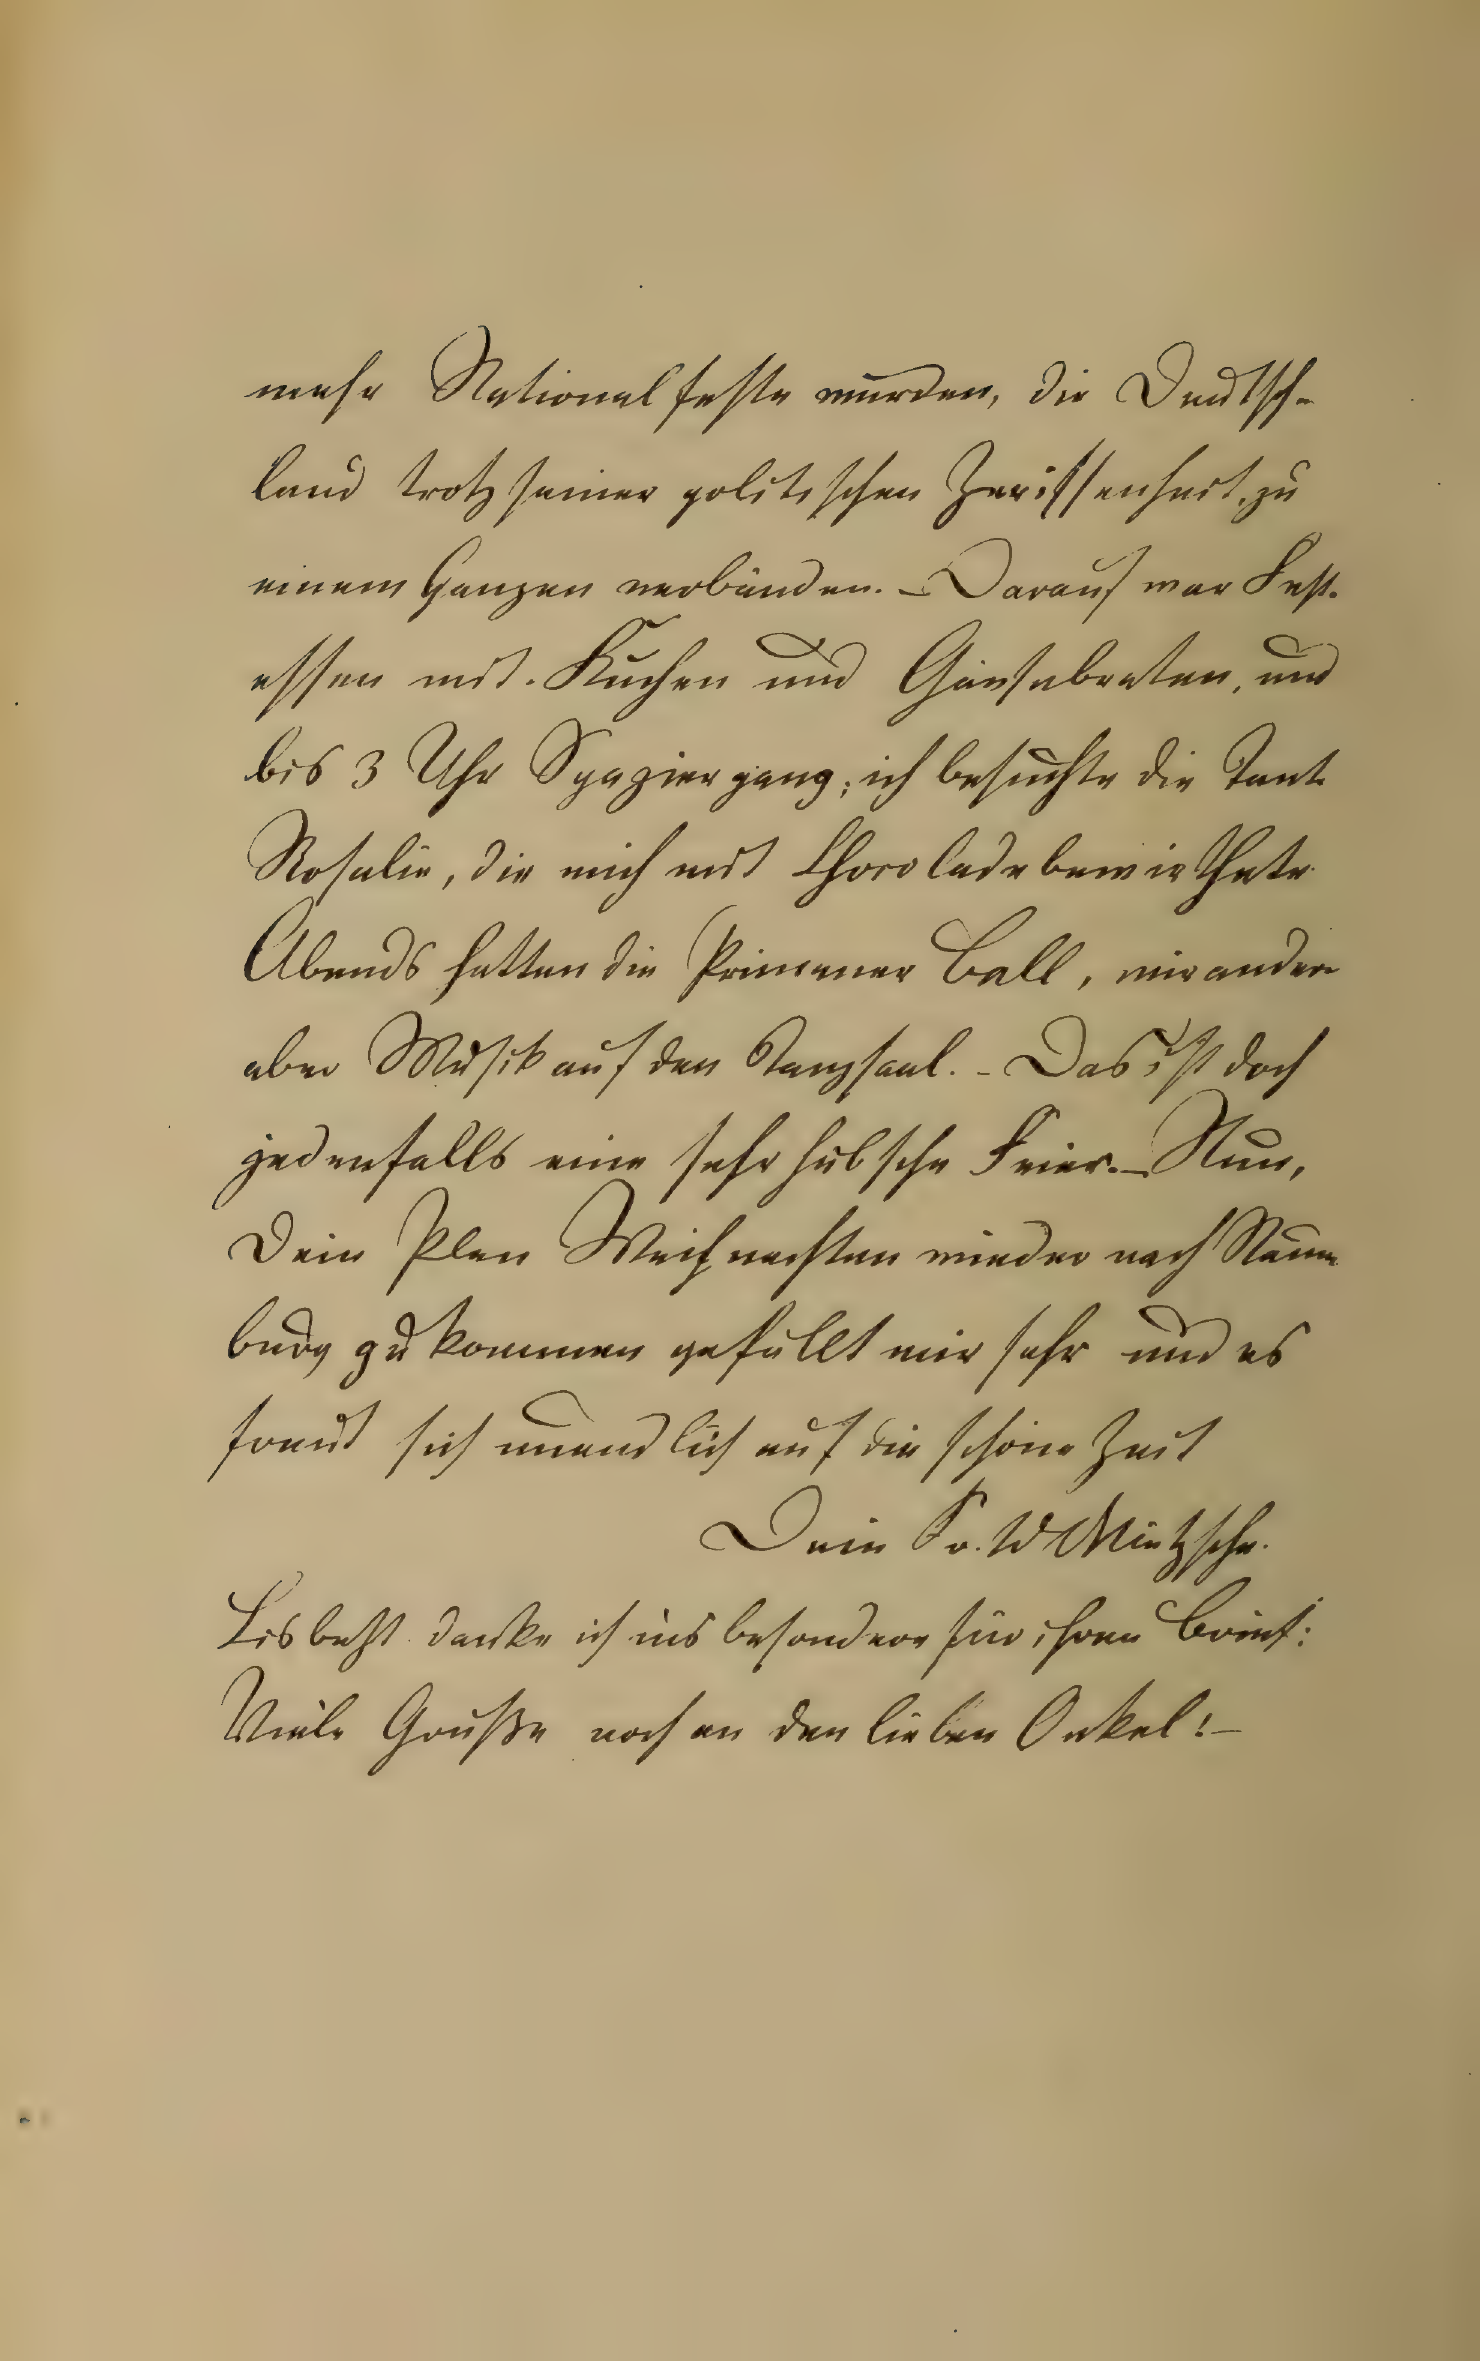 mehr Nationalfeste wurden, die Deutsch-
land trotz seiner politischen Zerissenheit, zu
einem Ganzen verbänden. – Darauf war Fest-
essen mit Kuchen und Gänsebraten, und
bis 3 Uhr Spaziergang; ich besuchte die Tante
Rosalie, die mich mit Chocolade bewirthete.
Abends hatten die Primaner Ball, wir andern
aber Musik auf den Tanzsaal. – Das ist doch
jedenfalls eine sehr hübsche Feier. – Nun,
Dein Plan Weihnachten wieder nach Naum
burg zu kommen gefällt mir sehr und es
freut sich unendlich auf die schöne Zeit
Dein Fr. W Nietzsche.
Lisbeht danke ich ins besondere für ihren Brief:
Viele Grüße noch an den lieben Onkel! –